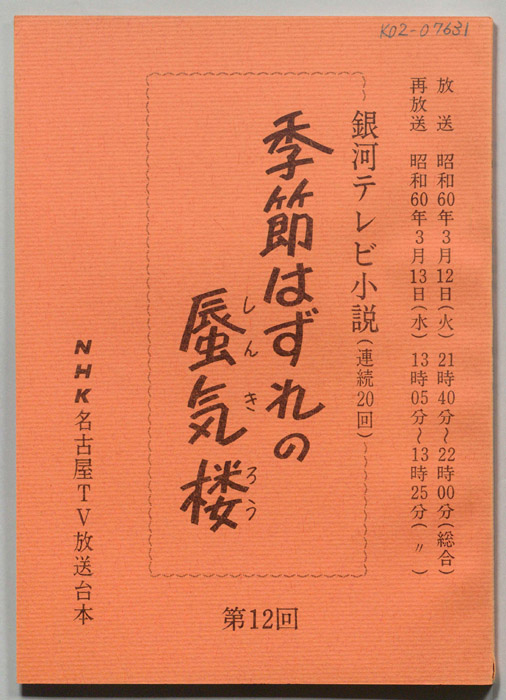 K02-07631
放送 昭和60年3月12日(火) 21時40分~22時00分(総合)
再放送 昭和60年3月13日(水) 13時05分~13時25分(〃)
銀河テレビ小説(連続20回)
季節はずれの
蜃気楼
しんきろう
第12回
NHK名古屋TV放送台本